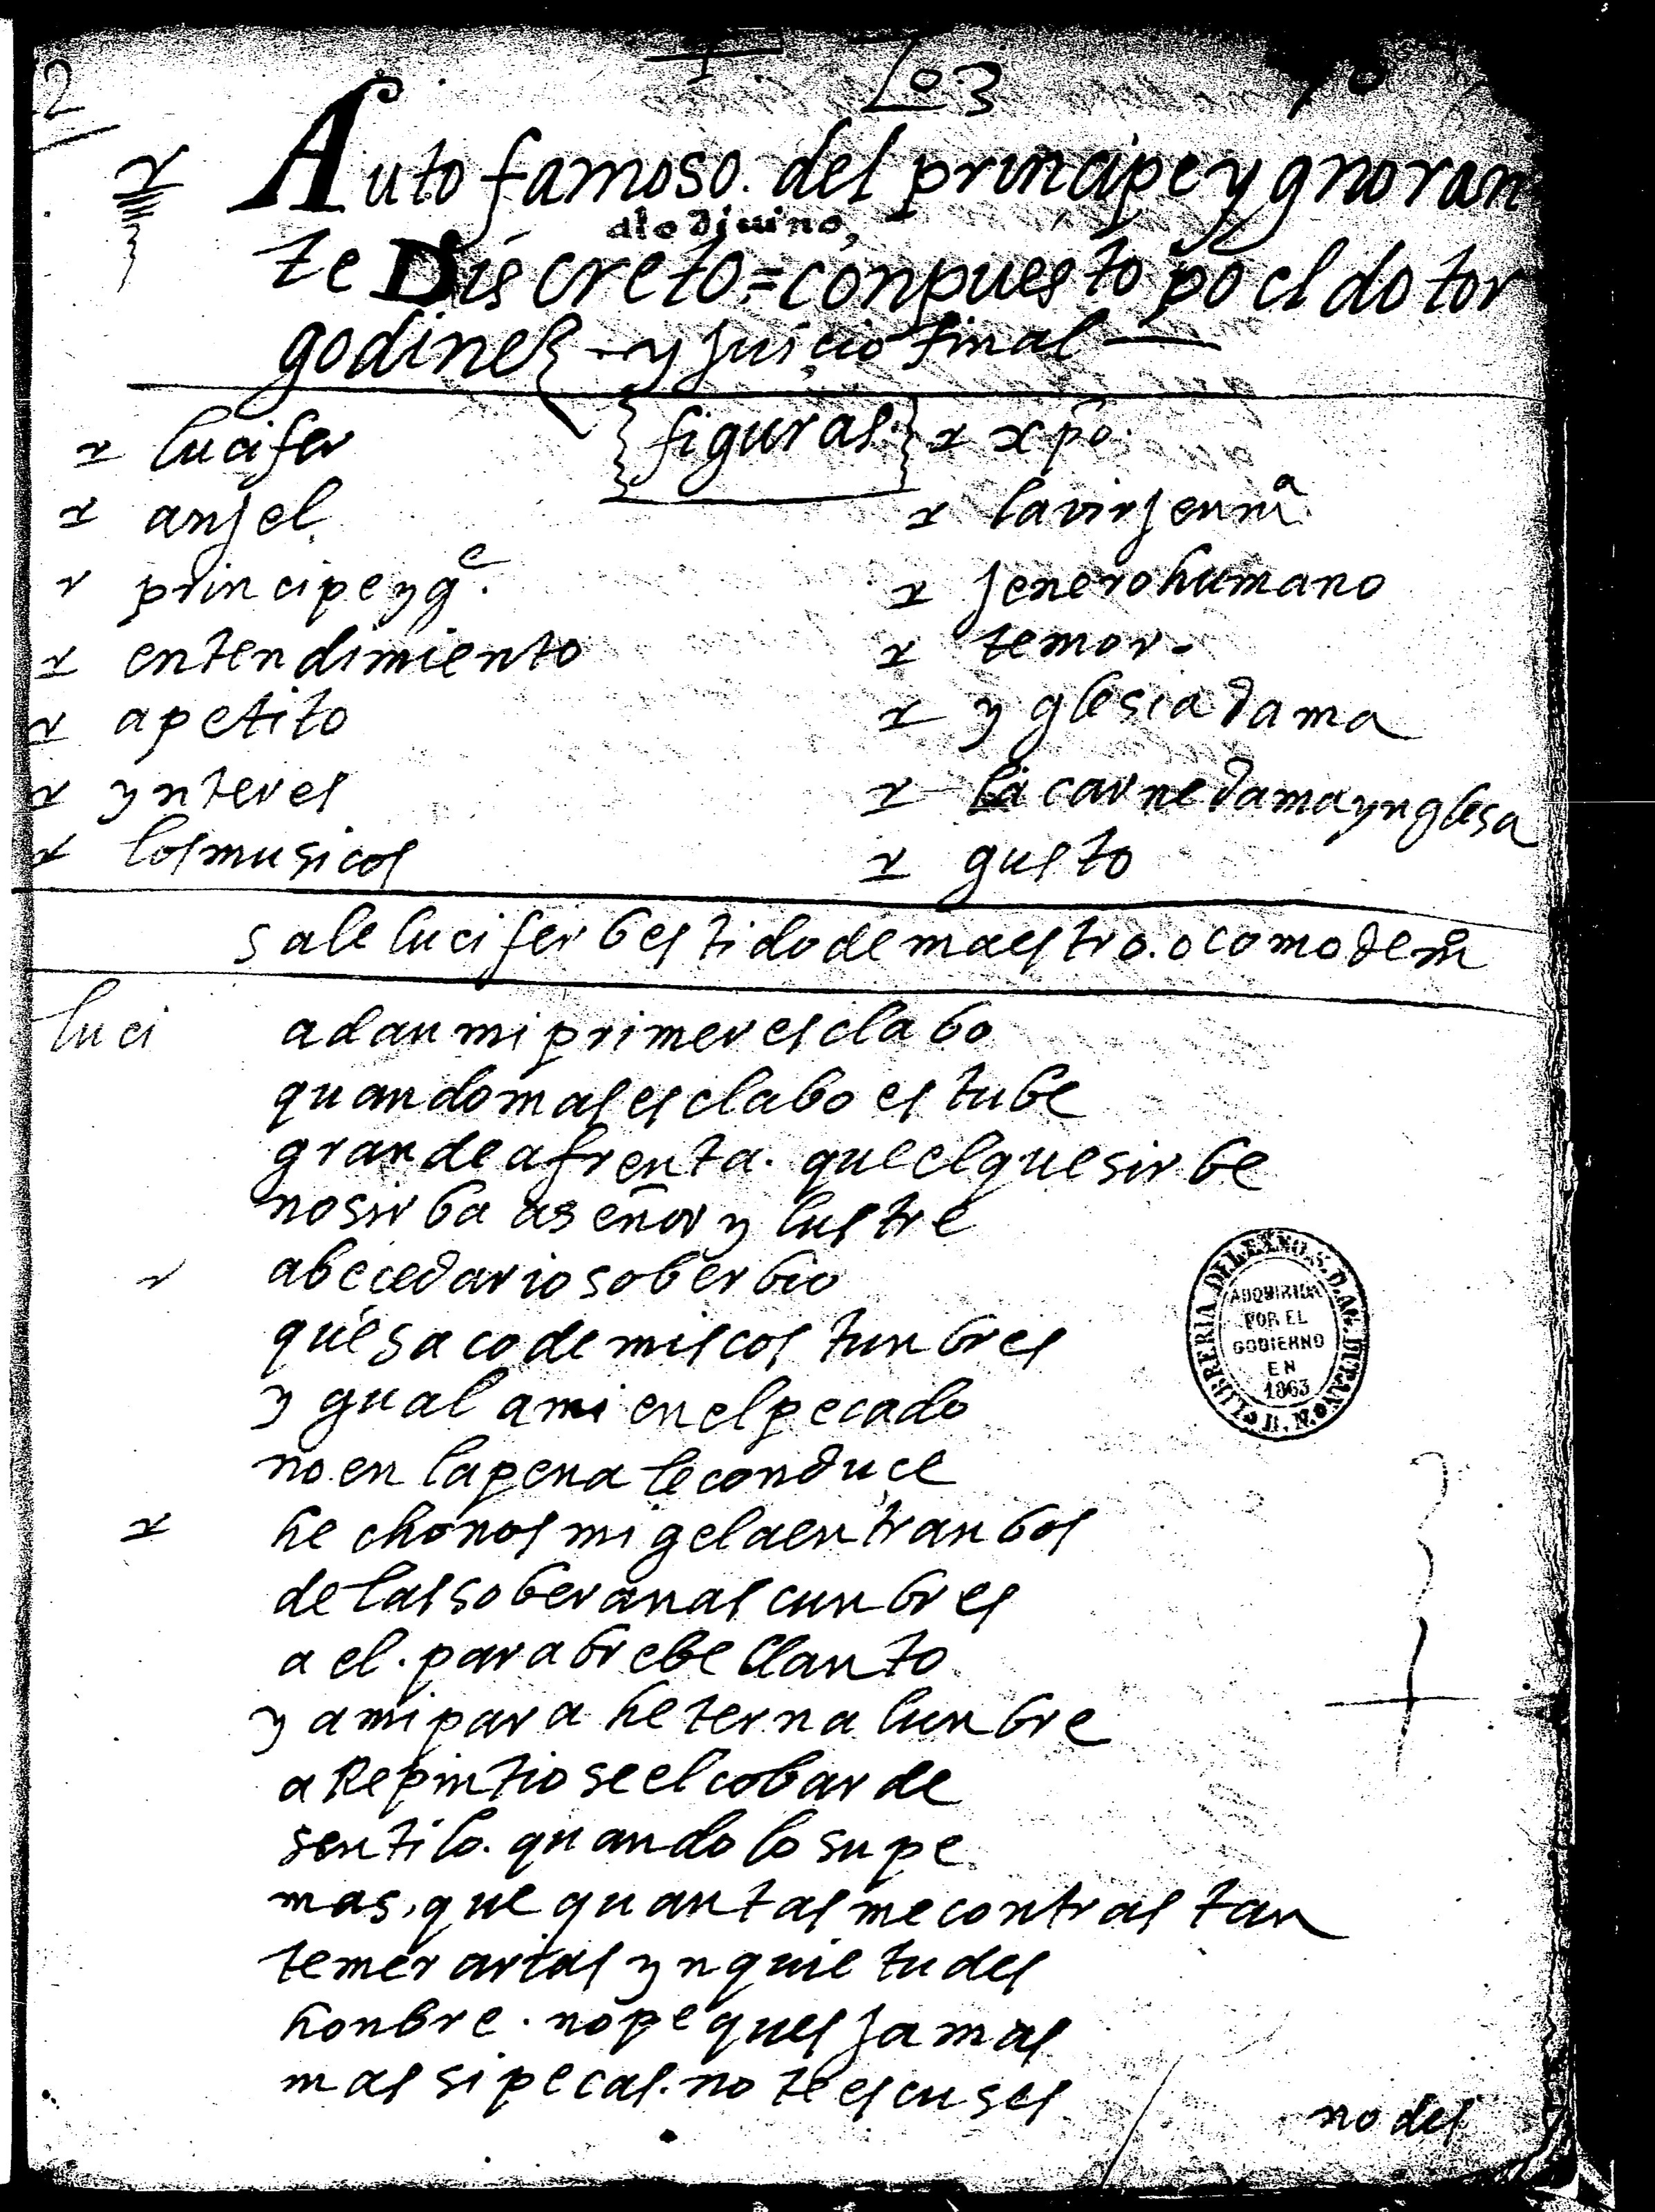 2
Lo 3
Auto famoso. del principe ygnoran
alo diuino,
te Discreto = conpuesto po el dotor
godinez - y juiçio final
figuras.
lucifer
xpo.
anjel
la virjen mª
principe yg.e
jenero humano
entendimiento
temor -
apetito
yglesia dama
ynteres
la carne dama ynglesa
los musicos
gusto
sale lucifer bestido de maestro. o como dem
luci
adan mi primer esclabo
quando mas esclabo estube
grande afrenta. que el que sirbe
no sirba a señor ylustre
abecedario soberbio
que saco de mis costunbres
ygual a mi en el pecado
no en la pena le conduçe
hechonos migel a entranbos
de las soberanas cunbres
a el. para brebe llanto
y a mi para heterna lunbre
aRepintiose el cobarde
sentilo. quando lo supe
mas, que quantas me contrastan
temerarias ynquietudes
honbre. no peques jamas
mas si pecas. no te escuses
no des
LIBRERIA DEL EXMO. S. D. AG. DURAN
ADQUIRIDA
POR EL
GOBIERNO
EN
1863